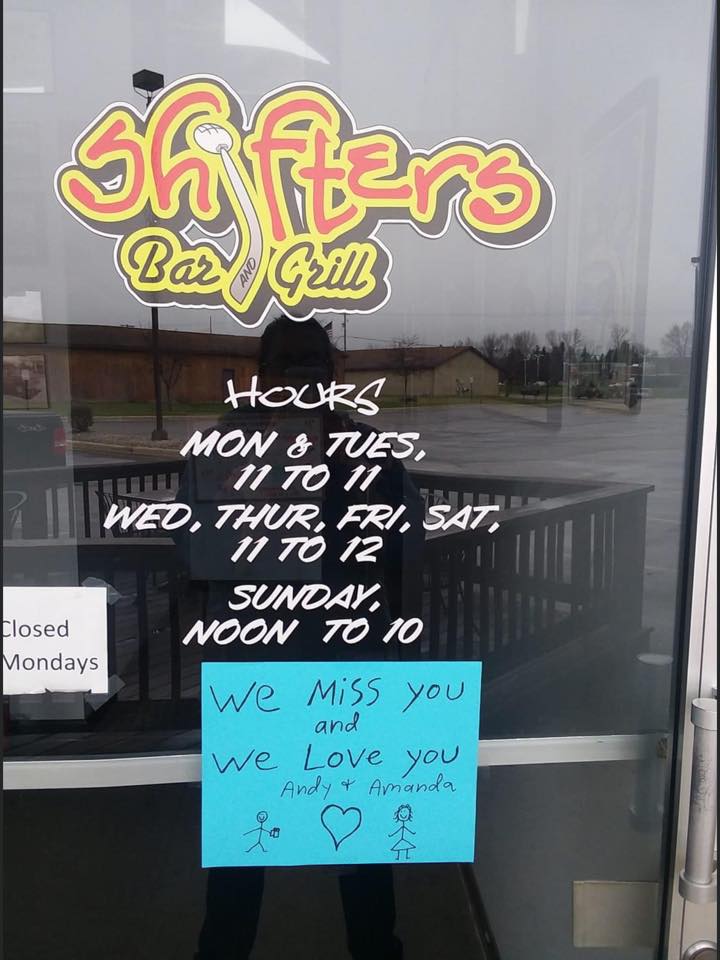 Shifters
Bar AND Grill
HOURS
MON & TUES,
11 TO 11
WED, THUR, FRI, SAT,
11 TO 12
SUNDAY,
NOON TO 10
Closed
Mondays
We Miss you
and
We Love you
Andy + Amanda